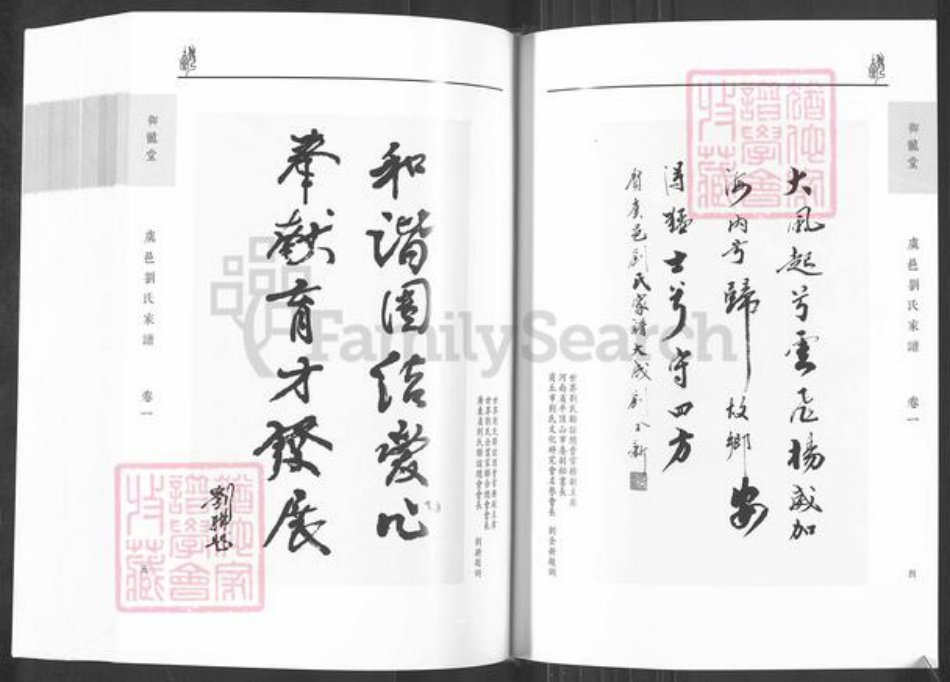 御龍堂
虞邑劉氏家譜
卷一
四
大風起兮雲飛揚威加
海內兮歸故鄉安
得猛士兮守四方
賀虞邑劉氏家譜大成
世界劉氏聯誼總會常務副主席
河南省平頂山市委副秘書長
商丘市劉氏文化研究會名譽會長 劉全新題詞
和諧團結愛心
奉獻育才發展
世界劉氏聯誼總會常務副主席
世界劉氏企業家聯合總會會長
廣東省劉氏聯誼總會會長
御龍堂
虞邑劉氏家譜
卷一
五
猶他家
譜學會
收藏
猶他家
譜學會
收藏
FamilySearch